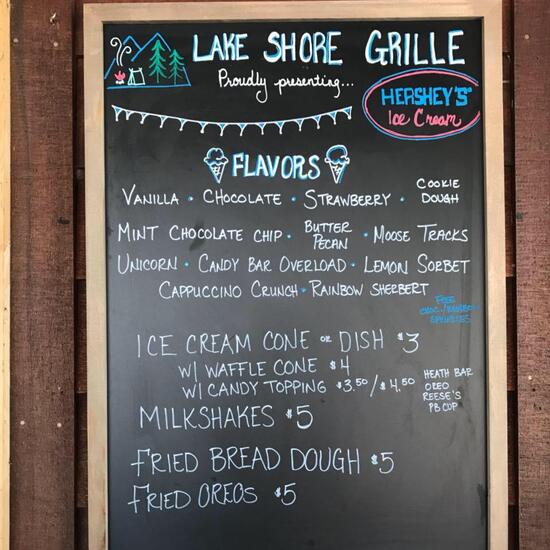 LAKE SHORE GRILLE
Proudly presenting...
HERSHEY'S
Ice Cream
FLAVORS
VANILLA • CHOCOLATE • STRAWBERRY • COOKIE DOUGH
MINT CHOCOLATE CHIP • BUTTER PECAN • MOOSE TRACKS
UNICORN • CANDY BAR OVERLOAD • LEMON SORBET
CAPPUCCINO CRUNCH • RAINBOW SHERBERT
FREE
CHOC./RAINBOW
SPRINKLES
ICE CREAM CONE OR DISH $3
W/ WAFFLE CONE $4
W/ CANDY TOPPING $3.50/$4.50
HEATH BAR
OREO
REESE'S
PB CUP
MILKSHAKES $5
FRIED BREAD DOUGH $5
FRIED OREOS $5